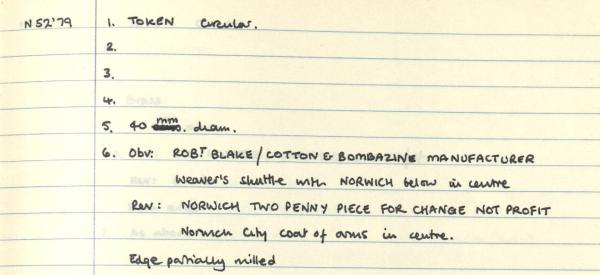 N52'79 1. TOKEN Circular.
2.
3.
4.
5. 40 mm. diam.
6. Obv: ROBT BLAKE/COTTON & BOMBAZINE MANUFACTURER
Weaver's shuttle with NORWICH below in centre
Rev: NORWICH TWO PENNY PIECE FOR CHANGE NOT PROFIT
Norwich City coat of arms in centre.
Edge partially milled